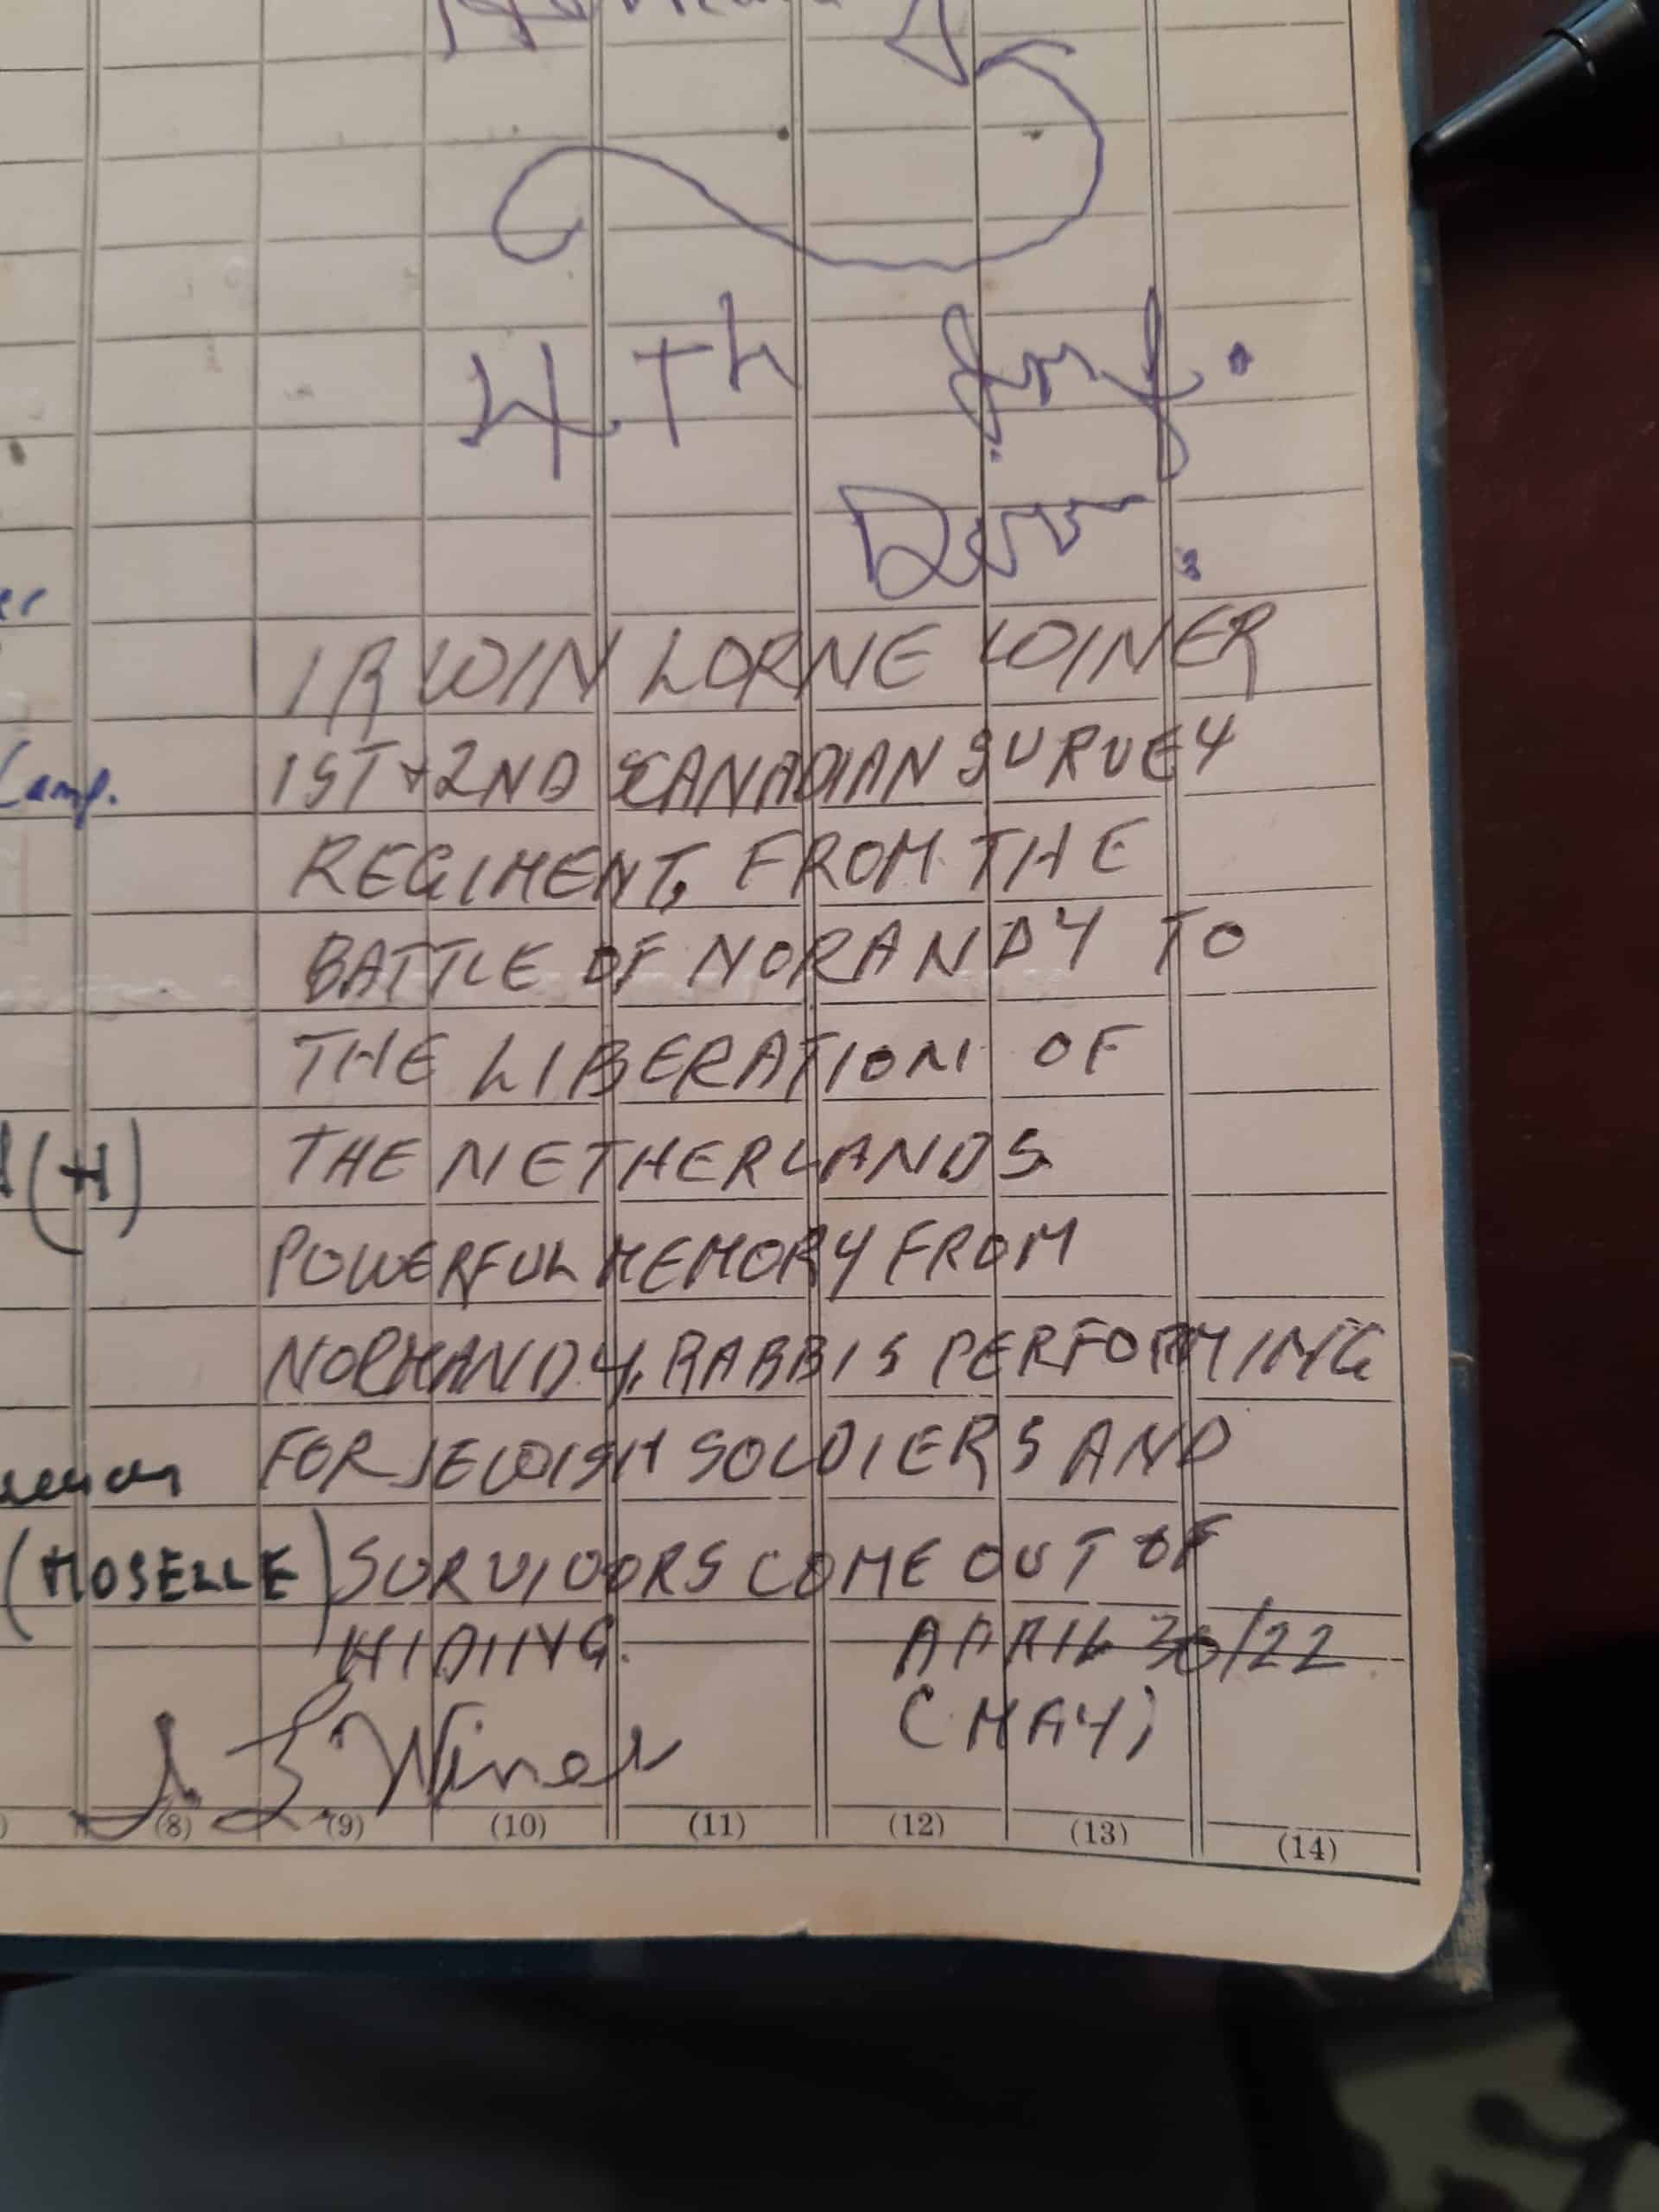 4Th Inf.
Div.
er
IRWIN LORNE WINER
1ST + 2ND CANADIAN SURVEY
Camp.
REGIMENT, FROM THE
BATTLE OF NORANDY TO
THE LIBERATION OF
(H)
THE NETHERLANDS
POWERFUL MEMORY FROM
NORMANDY, RABBIS PERFORMING
FOR JEWISH SOLDIERS AND
(MOSELLE)
SURVIVORS COME OUT OF
HIDIING. APRIL 30/22
(MAY)
I. L. Winer
(8) (9) (10) (11) (12) (13) (14)